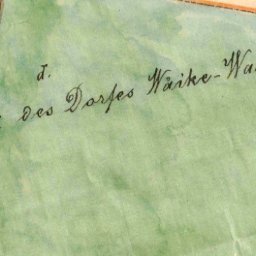 d.
des Dorfes Wäike-Wa